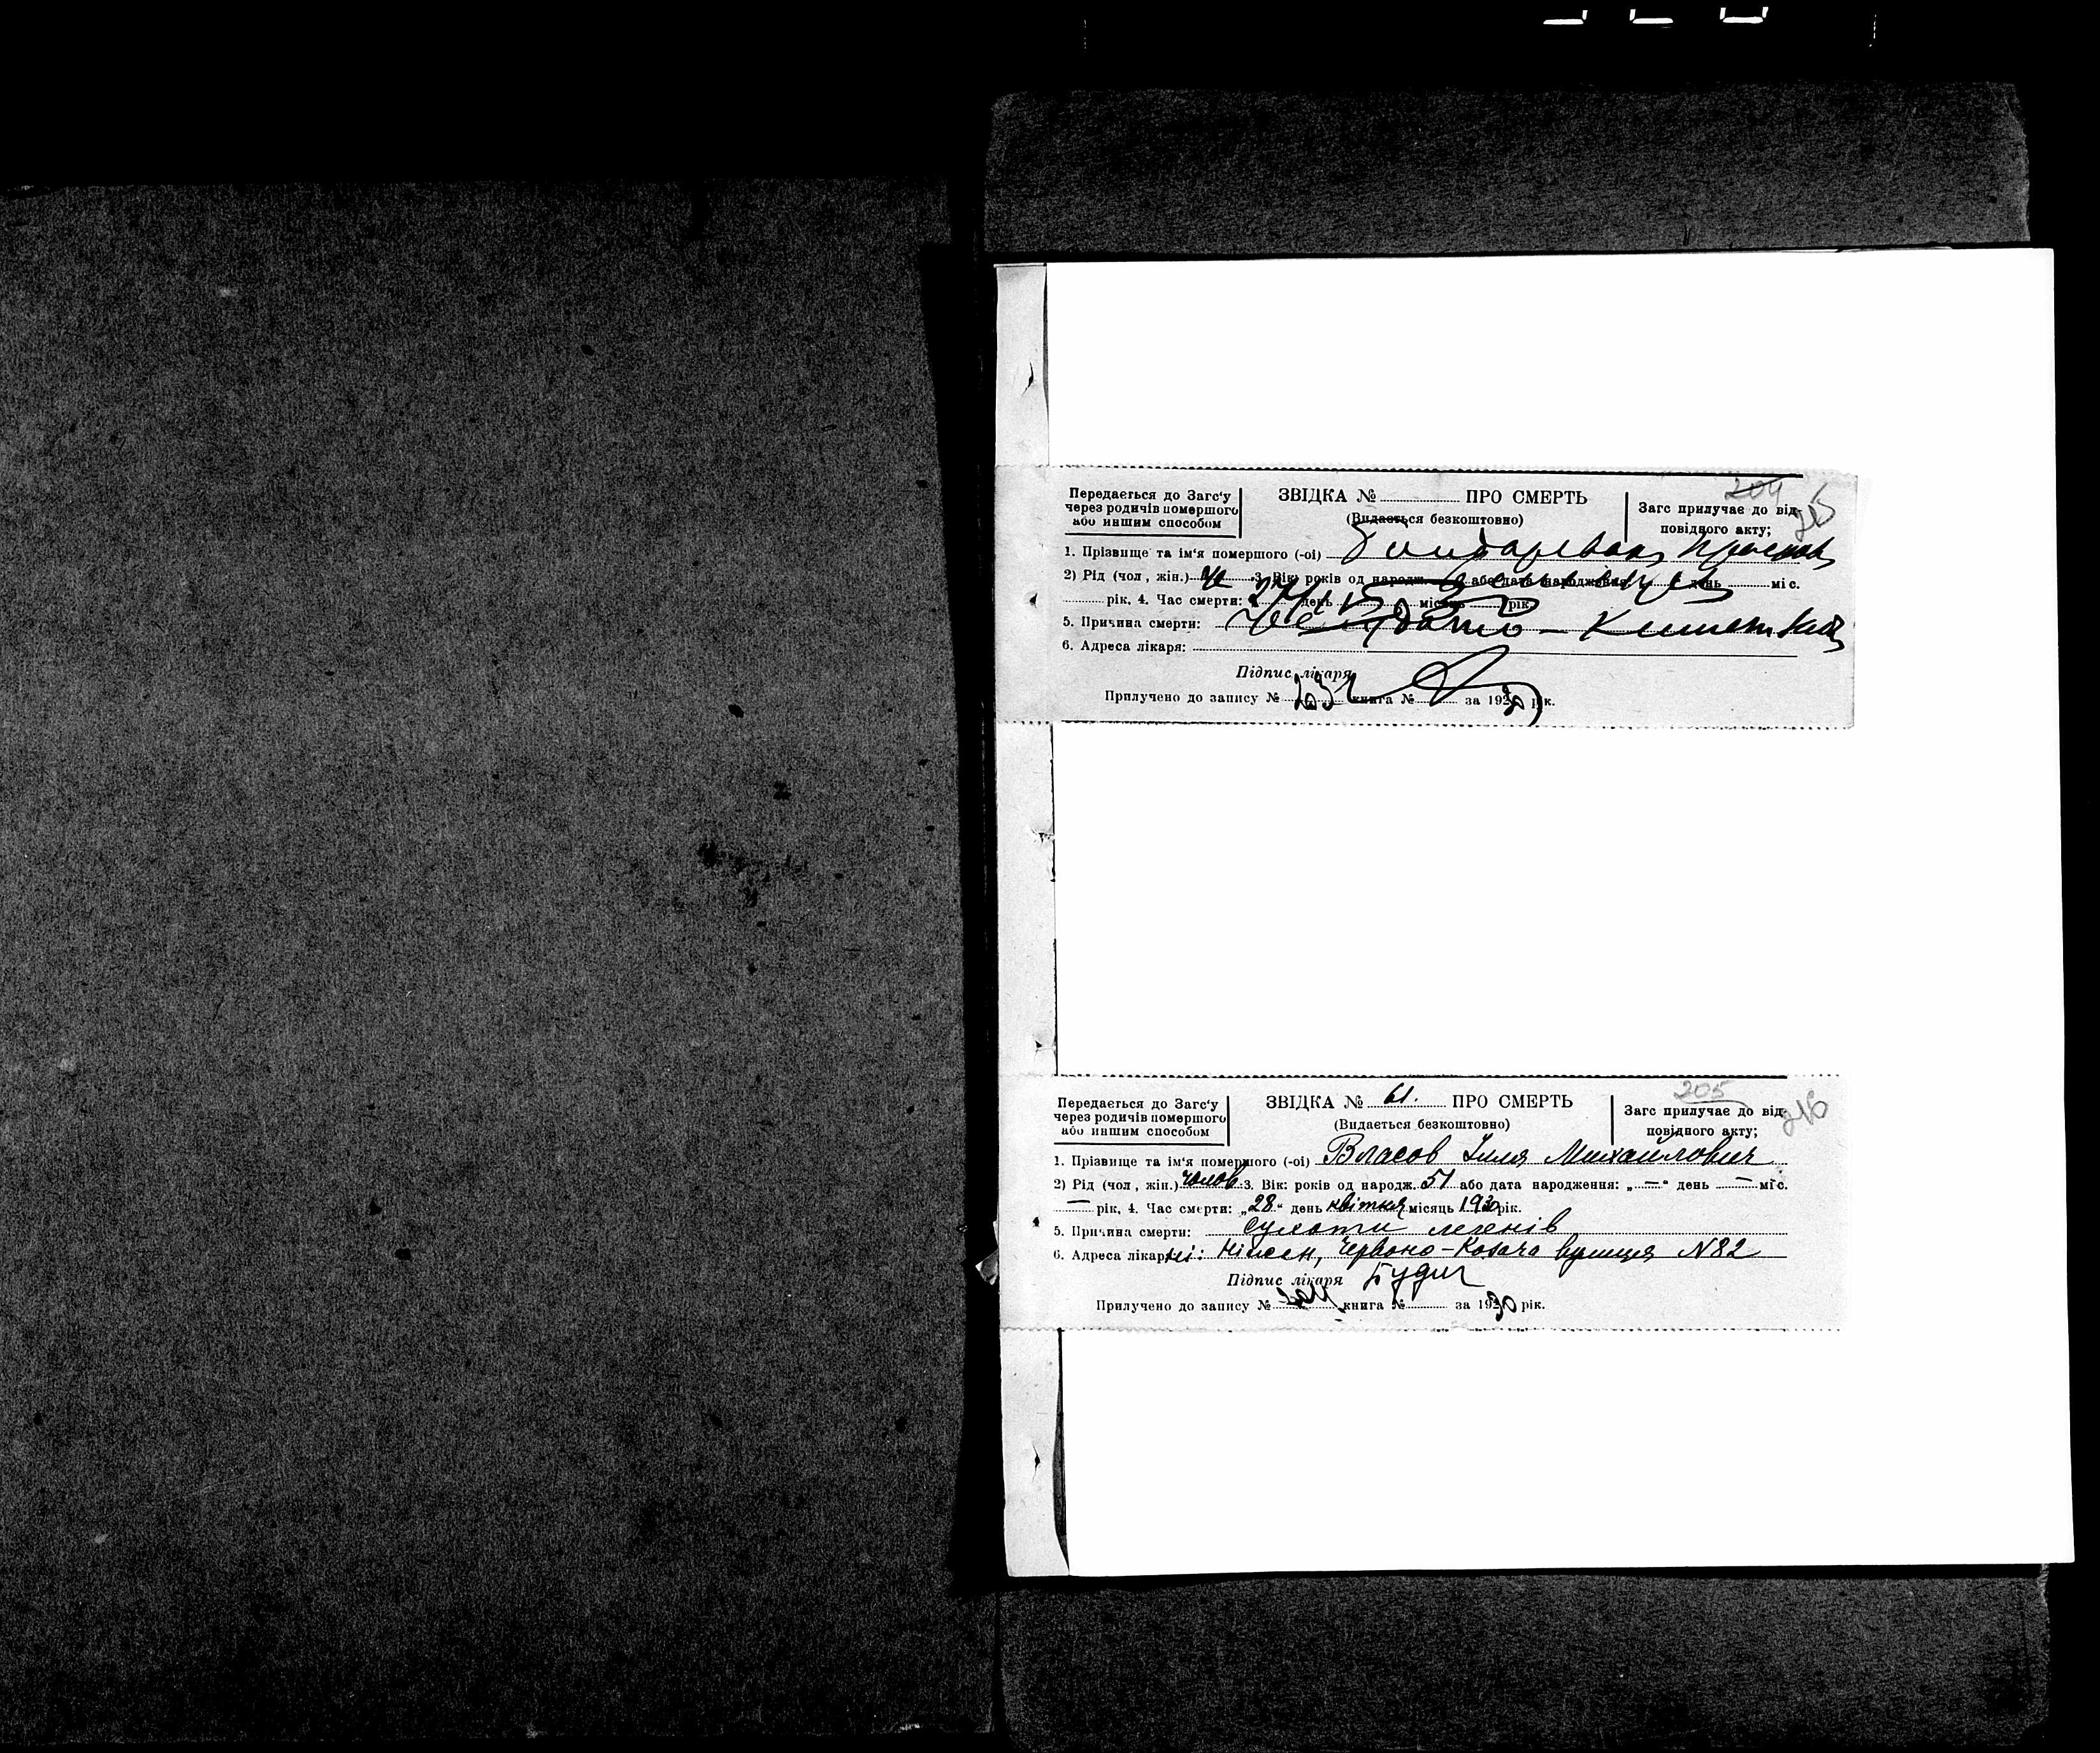 204
215
Передається до Загс'у
через родичів помершого
або иншим способом
ЗВІДКА № ПРО СМЕРТЬ
(Видається безкоштовно)
Загс прилучає до від-
повідного акту;
1. Прізвище та ім'я помершого (-ої)
2) Рід (чол, жін.) ж 3. Вік: років од народж. або дата народження: день міс.
рік, 4. Час смерти: 27/IV день місяць рік
5. Причина смерти:
6. Адреса лікаря:
Підпис лікаря
Прилучено до запису № 203 книга № за 1930 рік.
205
216
Передається до Загс'у
через родичів помершого
або иншим способом
ЗВІДКА № 61. ПРО СМЕРТЬ
(Видається безкоштовно)
Загс прилучає до від-
повідного акту;
1. Прізвище та ім'я помершого (-ої) Власов Ілля Михайлович
2) Рід (чол, жін.) чолов. 3. Вік: років од народж. 51 або дата народження: „ — “ день — міс.
— рік, 4. Час смерти: „28“ день квітня місяць 1930 рік.
5. Причина смерти: сухоти легенів
6. Адреса лікарні: Ніжен, Червоно-Козача вулиця N82
Підпис лікаря
Прилучено до запису № 204 книга № за 1930 рік.